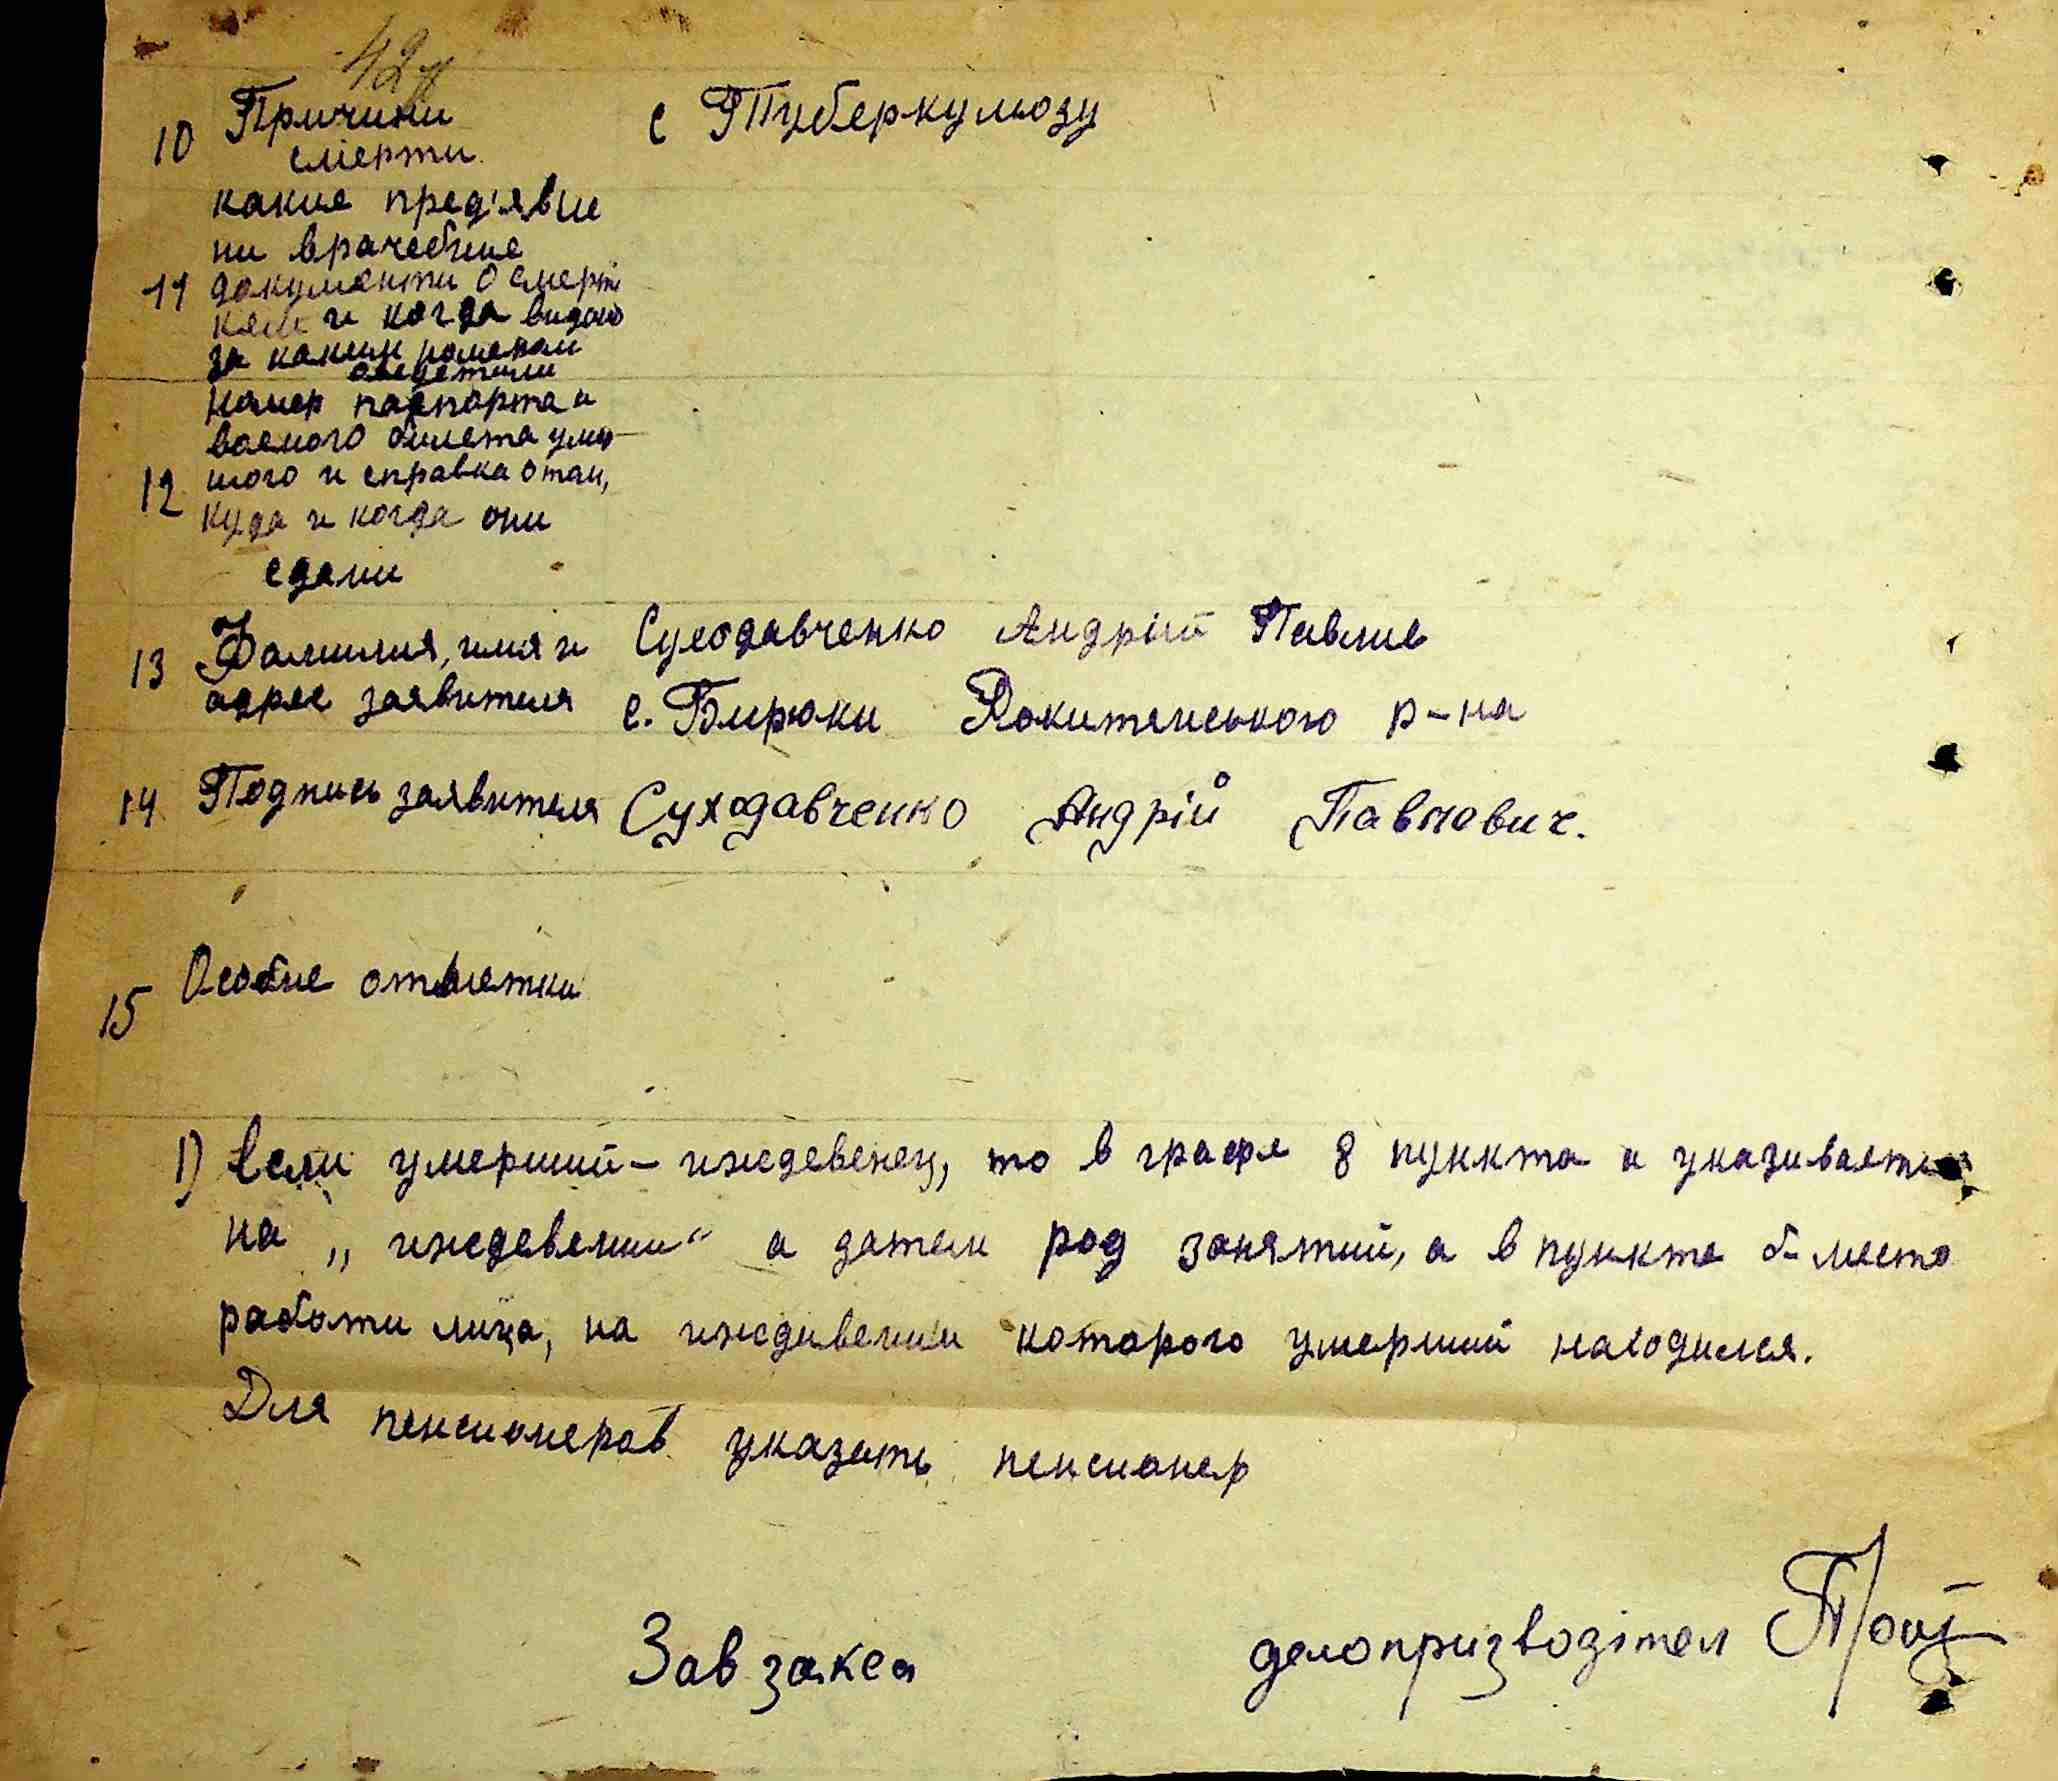 42
10 Причини с Туберкульозу
смерти
какие пред'явле
ни врачебние
11 документи о смерти
кем и когда видано
за каким номером
номер паспорта и
военого билета умер-
12 шого и справка о том,
куда и когда они
сдани
13 Фамилия, имя и Суходавченко Андрій Павлив
адрес заявителя с. Бирюки Рокитянського р-на
14 Подпись заявителя Суходавченко Андрій Павлович.
15 Особие отметки
1) Если умерший - иждевенец, то в графе 8 пункта а указивается
на „иждевении“ а затем род занятий, а в пункте б - место
работи лица, на иждивении которого умерший находился.
Для пенсионеров указать пенсионер
Зав закса делопризводітел